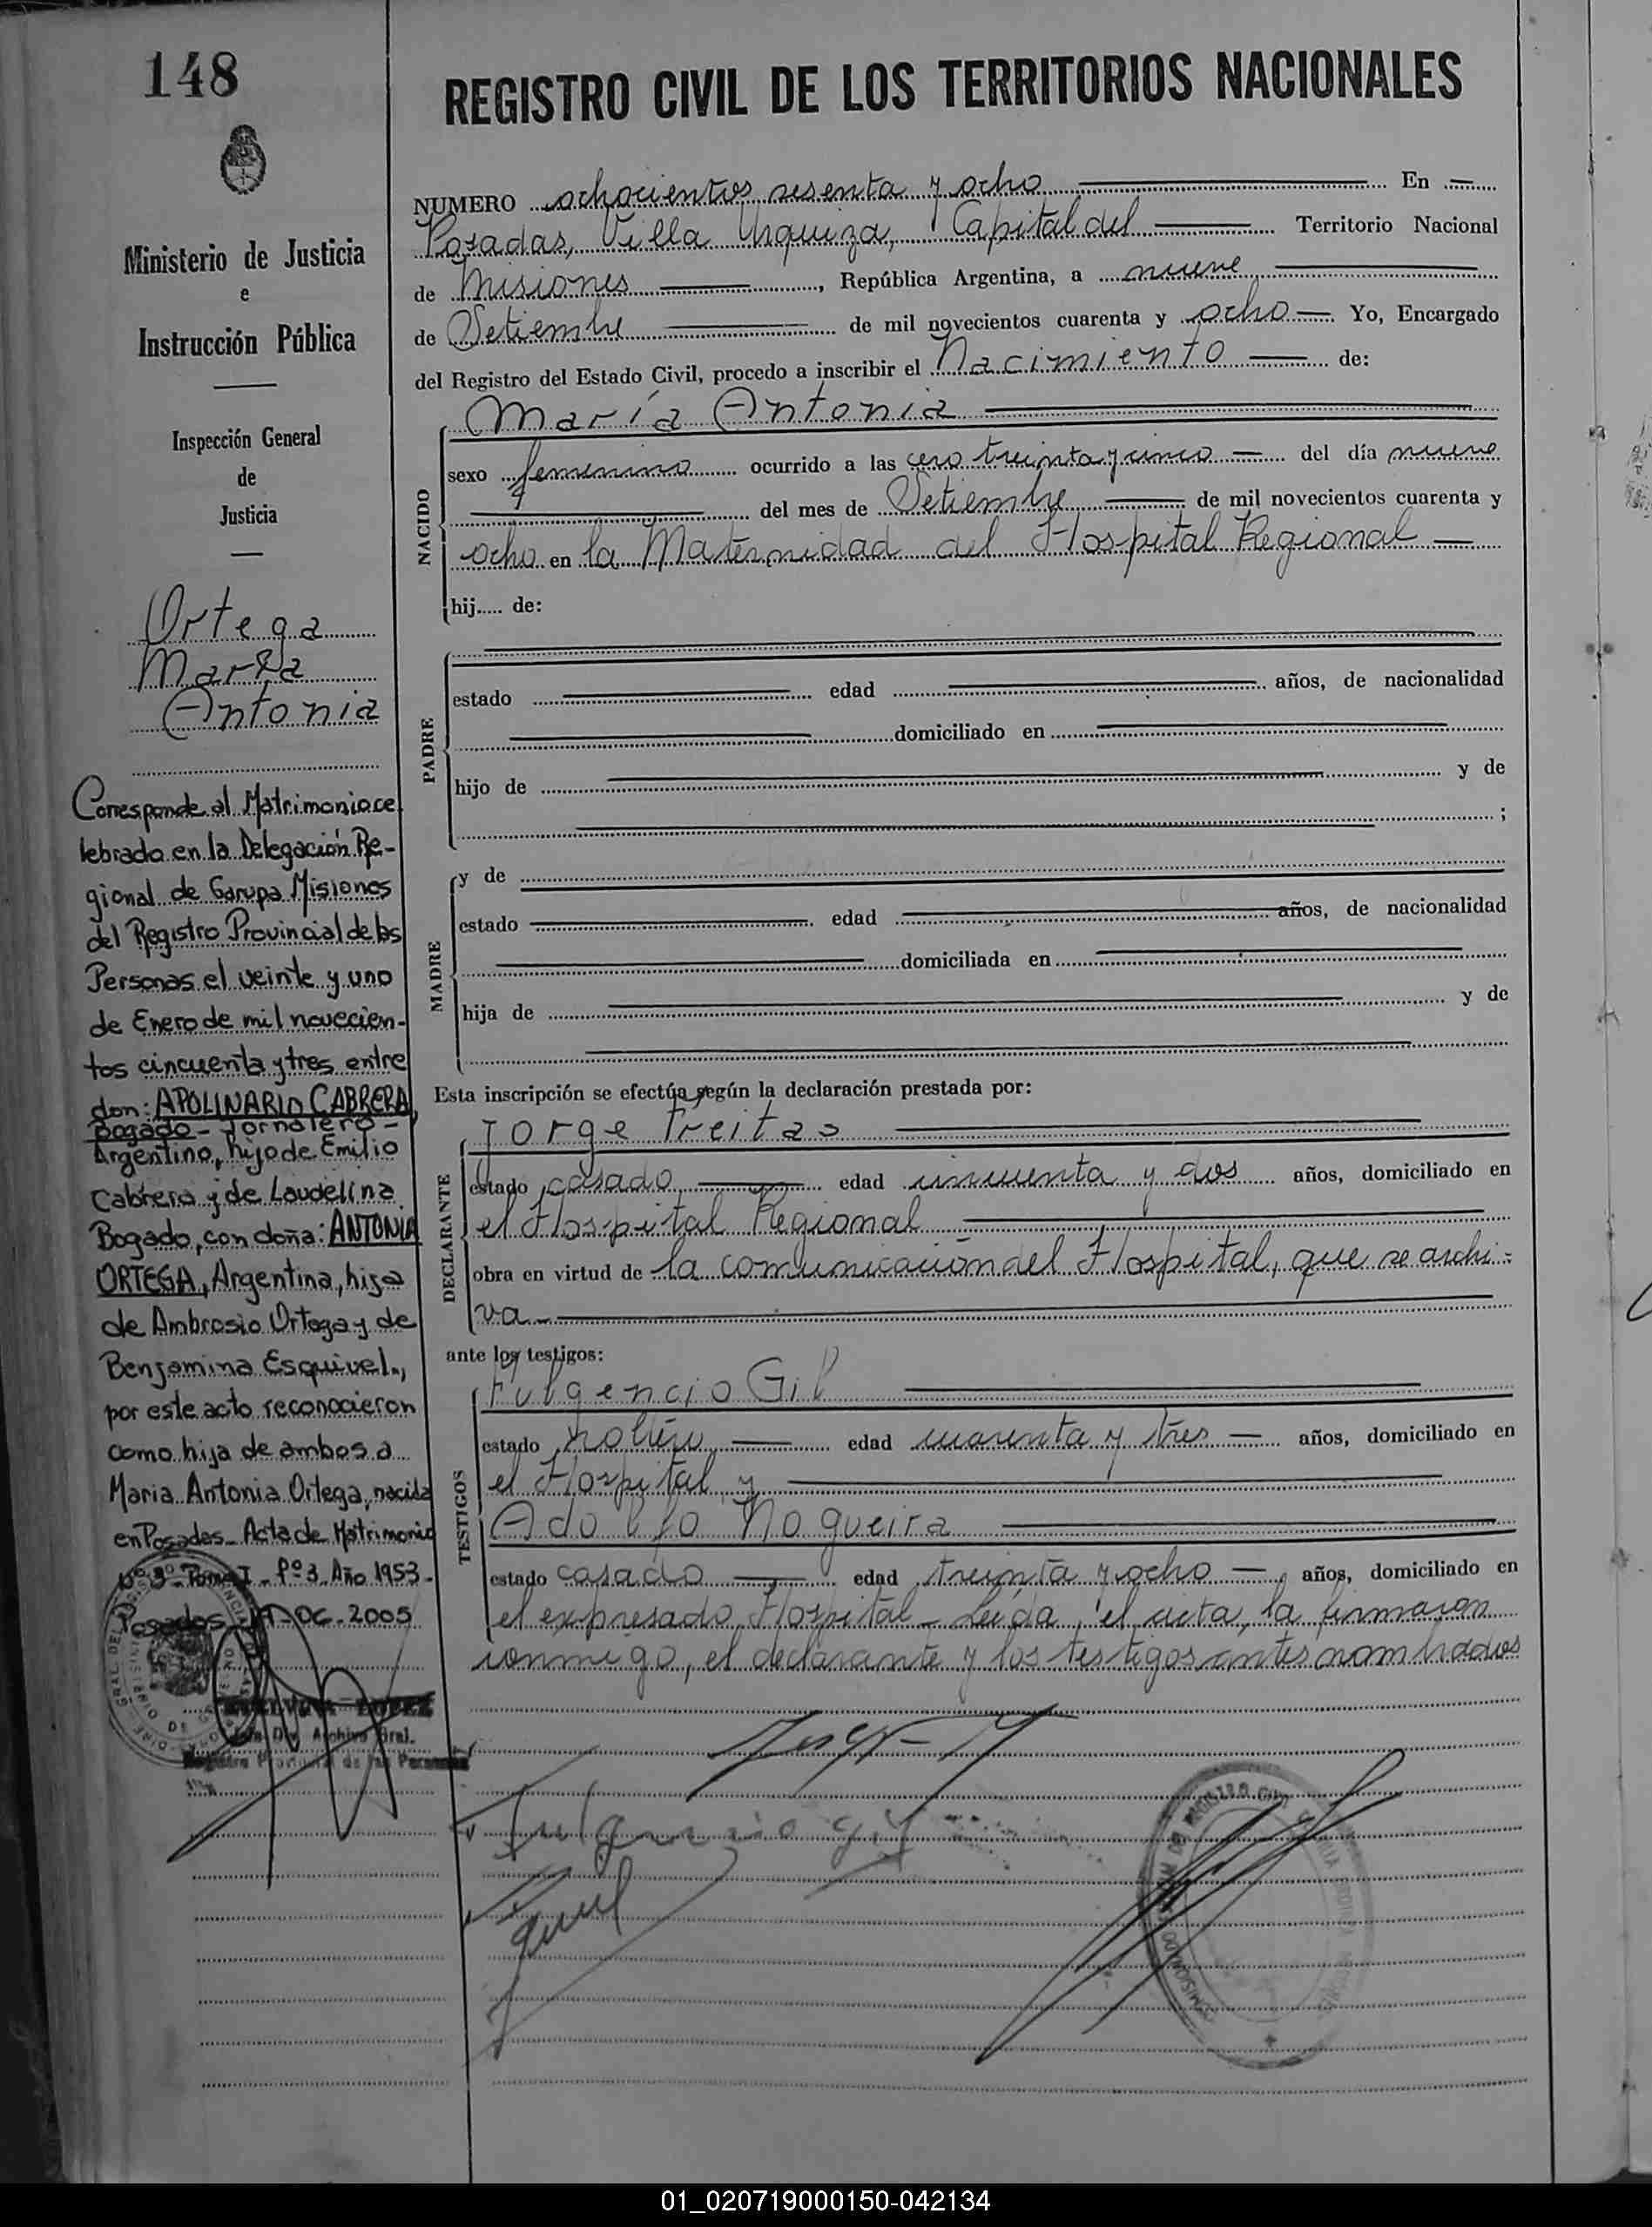 148
REGISTRO CIVIL DE LOS TERRITORIOS NACIONALES
Ministerio de Justicia
e
Instrucción Pública
Inspección General
de
Justicia
Ortega
María
Antonia
Corresponde al Matrimonio ce
lebrado en la Delegación Re-
gional de Garupa Misiones
del Registro Provincial de las
Personas el veinte y uno
de Enero de mil novecien-
tos cincuenta y tres entre
don: APOLINARIO CABRERA
Bogado - Jornalero -
Argentino, hijo de Emilio
Cabrera y de Laudelina
Bogado, con doña: ANTONIA
ORTEGA, Argentina, hija
de Ambrosio Ortega y de
Benjamina Esquivel.,
por este acto reconocieron
como hija de ambos a
Maria Antonia Ortega, nacida
en Posadas - Acta de Matrimonio
Nº 3 - Tomo I - Fº 3 Año 1953 -
Posadas, -06-2005
Archivo Gral.
NUMERO ochocientos sesenta y ocho En
Posadas, Villa Urquiza, Capital del Territorio Nacional
de Misiones, República Argentina, a nueve
de Setiembre de mil novecientos cuarenta y ocho Yo, Encargado
del Registro del Estado Civil, procedo a inscribir el Nacimiento de:
NACIDO
María Antonia
sexo femenino ocurrido a las cero treinta y cinco del día nueve
del mes de Setiembre de mil novecientos cuarenta y
ocho en la Maternidad del Hospital Regional
hij..... de:
PADRE
estado edad años, de nacionalidad
domiciliado en
hijo de y de
;
MADRE
y de
estado edad años, de nacionalidad
domiciliada en
hija de y de
Esta inscripción se efectúa según la declaración prestada por:
DECLARANTE
Jorge Freitas
estado casado edad cincuenta y dos años, domiciliado en
el Hospital Regional
obra en virtud de la comunicación del Hospital, que se archi-
va -
ante los testigos:
TESTIGOS
Fulgencio Gil
estado soltero edad cuarenta y tres años, domiciliado en
el Hospital y
Adolfo Nogueira
estado casado edad treinta y ocho años, domiciliado en
el expresado Hospital - Leída el acta, la firmaron
conmigo, el declarante y los testigos antes nombrados
Fulgencio Gil
01_020719000150-042134